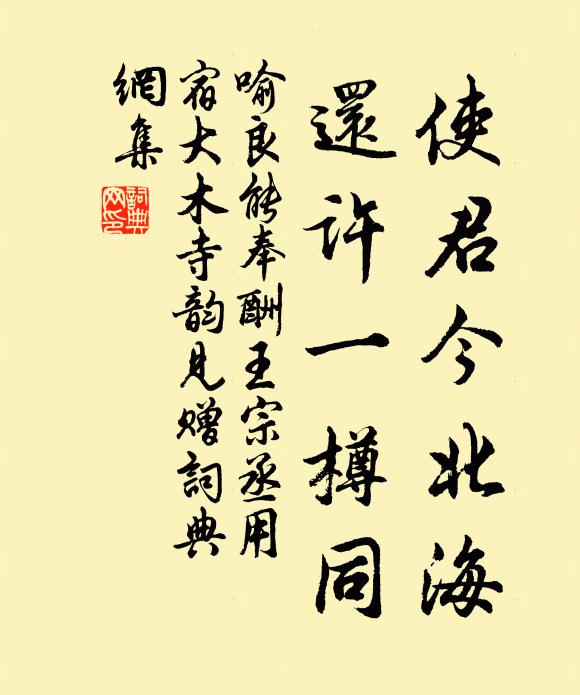 使君今北海
還許一樽同
喻良能奉酬王宗丞用
宿大木寺韵見贈詞典
網集
詞典网印